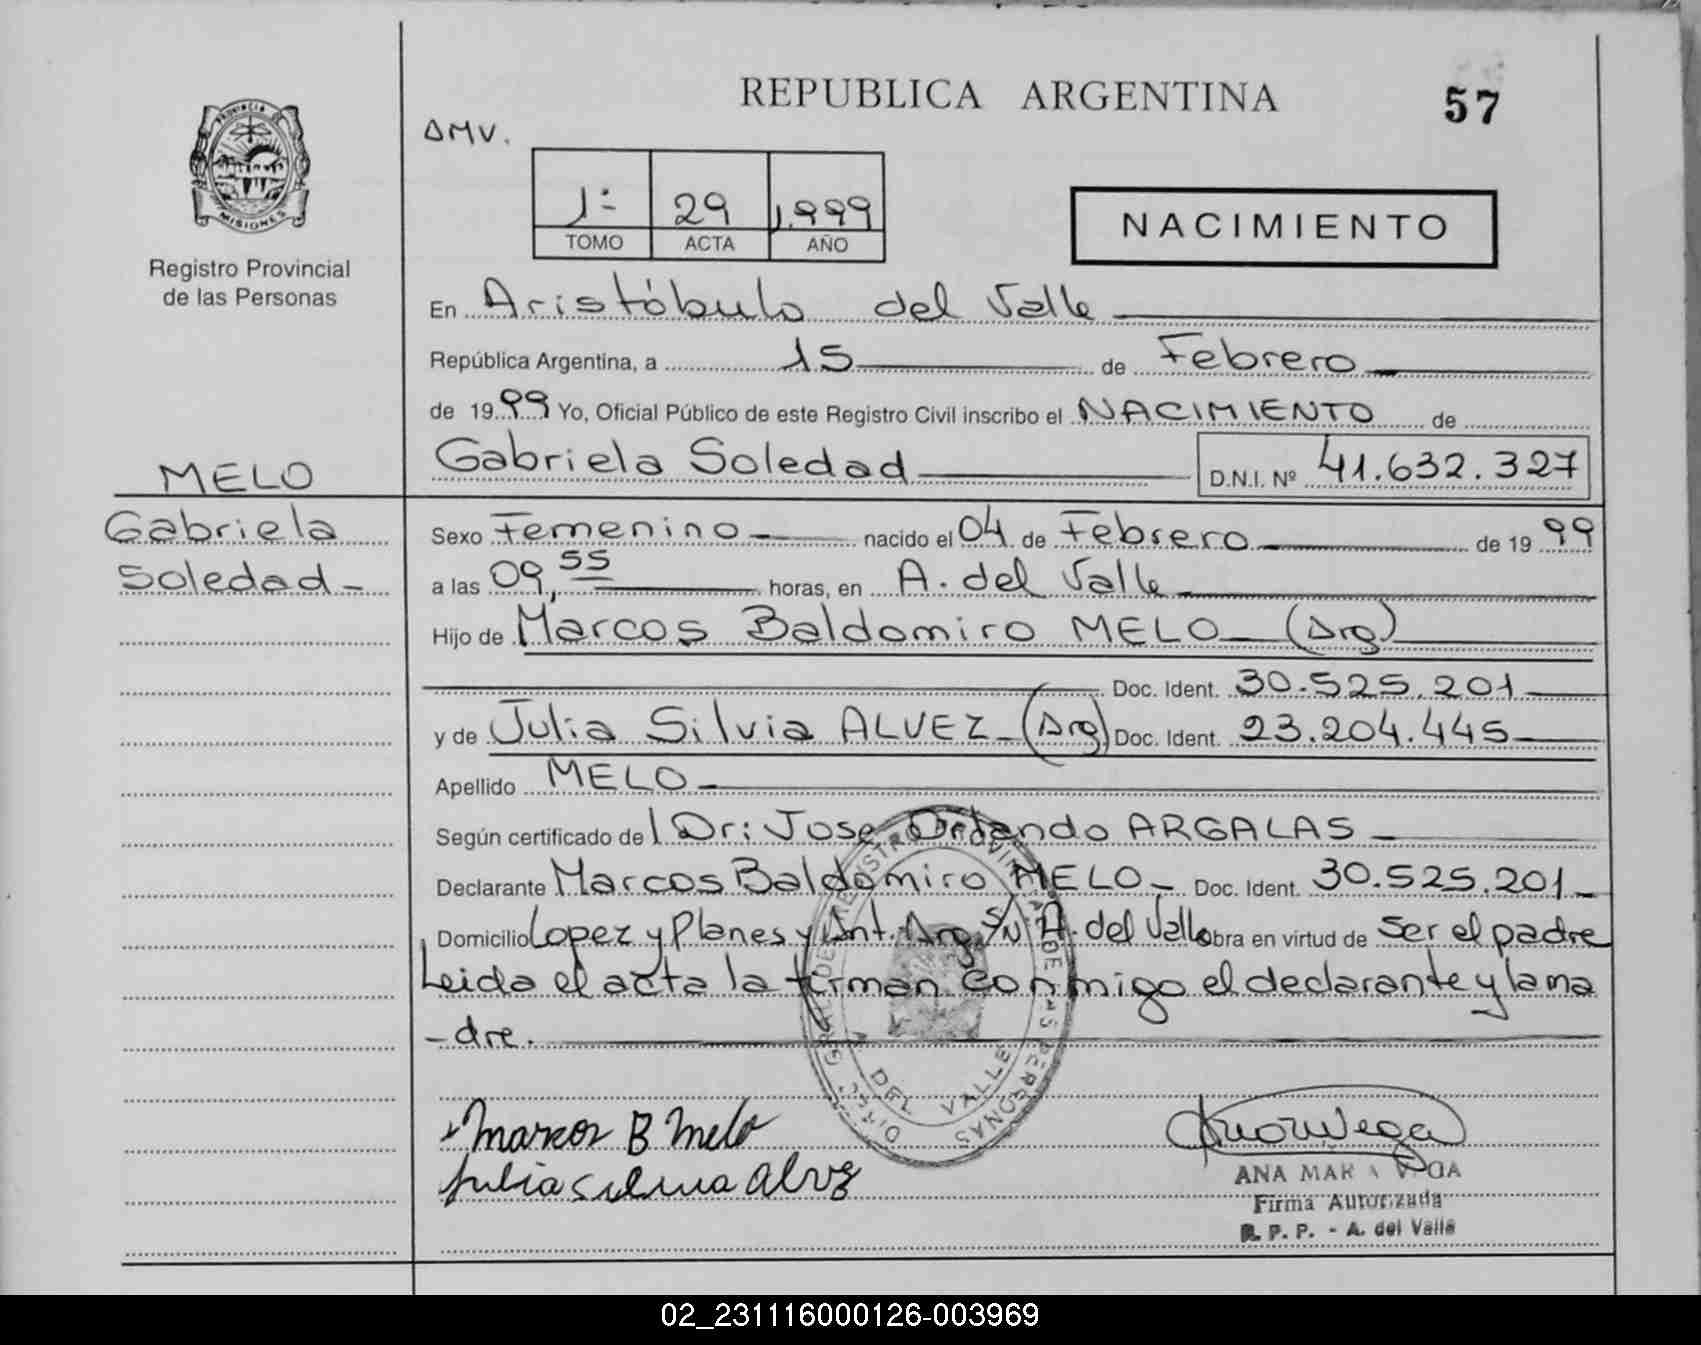 REPUBLICA ARGENTINA
57
DMV.
PROVINCIA DE
MISIONES
Registro Provincial
de las Personas
1º 29 1.999
TOMO ACTA AÑO
NACIMIENTO
En Aristóbulo del Valle
República Argentina, a 15 de Febrero
de 1999 Yo, Oficial Público de este Registro Civil inscribo el NACIMIENTO de
Gabriela Soledad D.N.I. Nº 41.632.327
MELO
Gabriela
Soledad-
Sexo Femenino nacido el 04 de Febrero de 1999
a las 09,55 horas, en A. del Valle
Hijo de Marcos Baldomiro MELO (Arg)
Doc. Ident. 30.525.201
y de Julia Silvia ALVEZ (Arg) Doc. Ident. 23.204.445
Apellido MELO
Según certificado de Dr: Jose Orlando ARGALAS
Declarante Marcos Baldomiro MELO Doc. Ident. 30.525.201
Domicilio Lopez y Planes y Ant. Arg. S/N A. del Valle obra en virtud de Ser el padre
Leida el acta la firman conmigo el declarante y la ma
-dre.
DEL VALLE
Marcos B Melo
Julia Silvia Alvez
ANA MARIA VEGA
Firma Autorizada
R. P. P. - A. del Valle
02_231116000126-003969